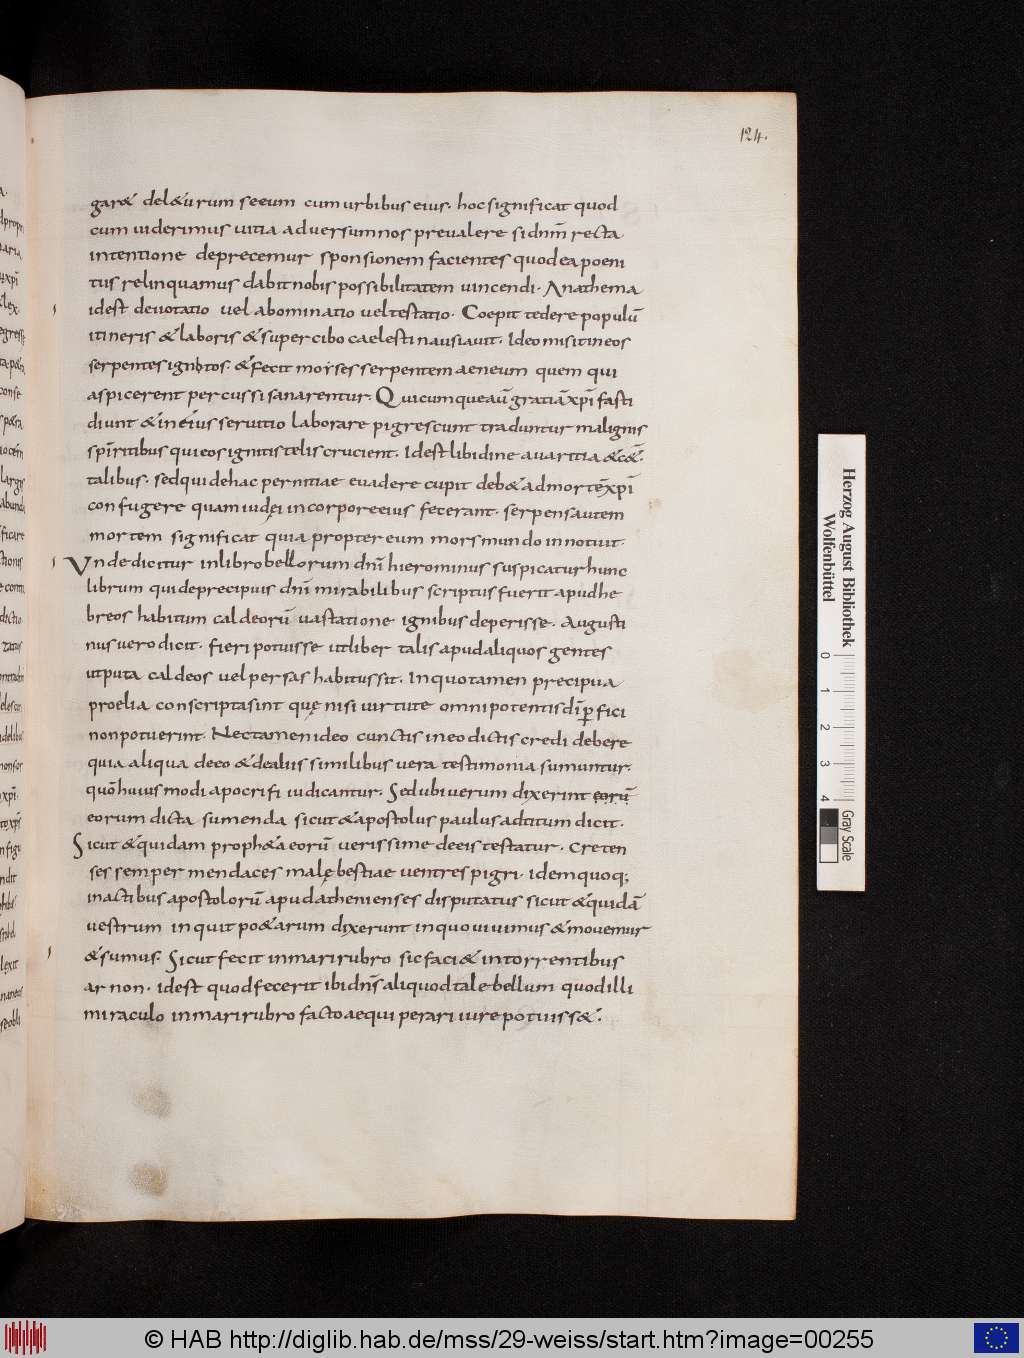 124.
garet deleturum se eum cum urbibus eius. hoc significat quod
cum uiderimus uitia aduersum nos preualere si dnm̄ recta
intentione deprecemur sponsionem facientes quod ea poeni
tus relinquamus dabit nobis possibilitatem uincendi. Anathema
idest deuotatio uel abominatio uel testatio. Coepit tedere populū
itineris & laboris & super cibo caelesti nausiauit. Ideo misit in eos
serpentes ignitos. & fecit moises serpentem aeneum quem qui
aspicerent percussi sanarentur. Quicumque aūt gratiā xpī fasti
diunt & in eius seruitio laborare pigrescunt traduntur malignis
spīritibus qui eos ignitis telis crucient. Idest libidine auaritia & cet̄.
talibus. sed qui de hac pernitiae euadere cupit debet ad mortē xpī
confugere quam iudęi in corpore eius fecerant. serpens autem
mortem significat quia propter eum mors mundo innotuit.
Vnde dicitur in libro bellorum dnī hierominus suspicatur hunc
librum qui de precipuis dnī mirabilibus scriptus fuerit apud he
breos habitum caldeorū uastatione ignibus deperisse. Augusti
nus uero dicit. fieri potuisse ut liber talis apud aliquos gentes
utputa caldeos uel persas habitus sit. In quo tamen precipua
proelia conscripta sint quę nisi uirtute omnipotentis dī ꝑfici
non potuerint. Nec tamen ideo cunctis in eo dictis credi debere
quia aliqua de eo & de aliis similibus uera testimonia sumuntur.
quō huiusmodi apocrifi iudicantur. Sed ubi uerum dixerint eorū
eorum dicta sumenda sicut & apostolus paulus ad titum dicit.
Sicut & quidam propheta eorū uerissime de eis testatur. Creten
ses semper mendaces malę bestiae uentres pigri. Idem quoq;
in actibus apostolorū apud athenienses disputatus sicut & quidā
uestrum inquit poetarum dixerunt in quo uiuimus & mouemur
& sumus. Sicut fecit in mari rubro sic faciet in torrentibus
arnon. idest quod fecerit ibi dn̄s aliquod tale bellum quod illi
miraculo in mari rubro facto aequiperari iure potuisset.
Herzog August Bibliothek
Wolfenbüttel
0 1 2 3 4
Gray Scale
© HAB http://diglib.hab.de/mss/29-weiss/start.htm?image=00255